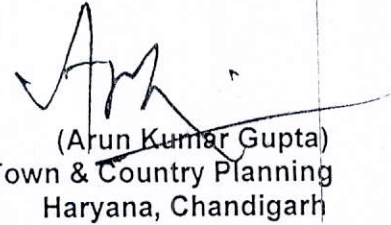 (Arun Kumar Gupta)
Town & Country Planning
Haryana, Chandigarh